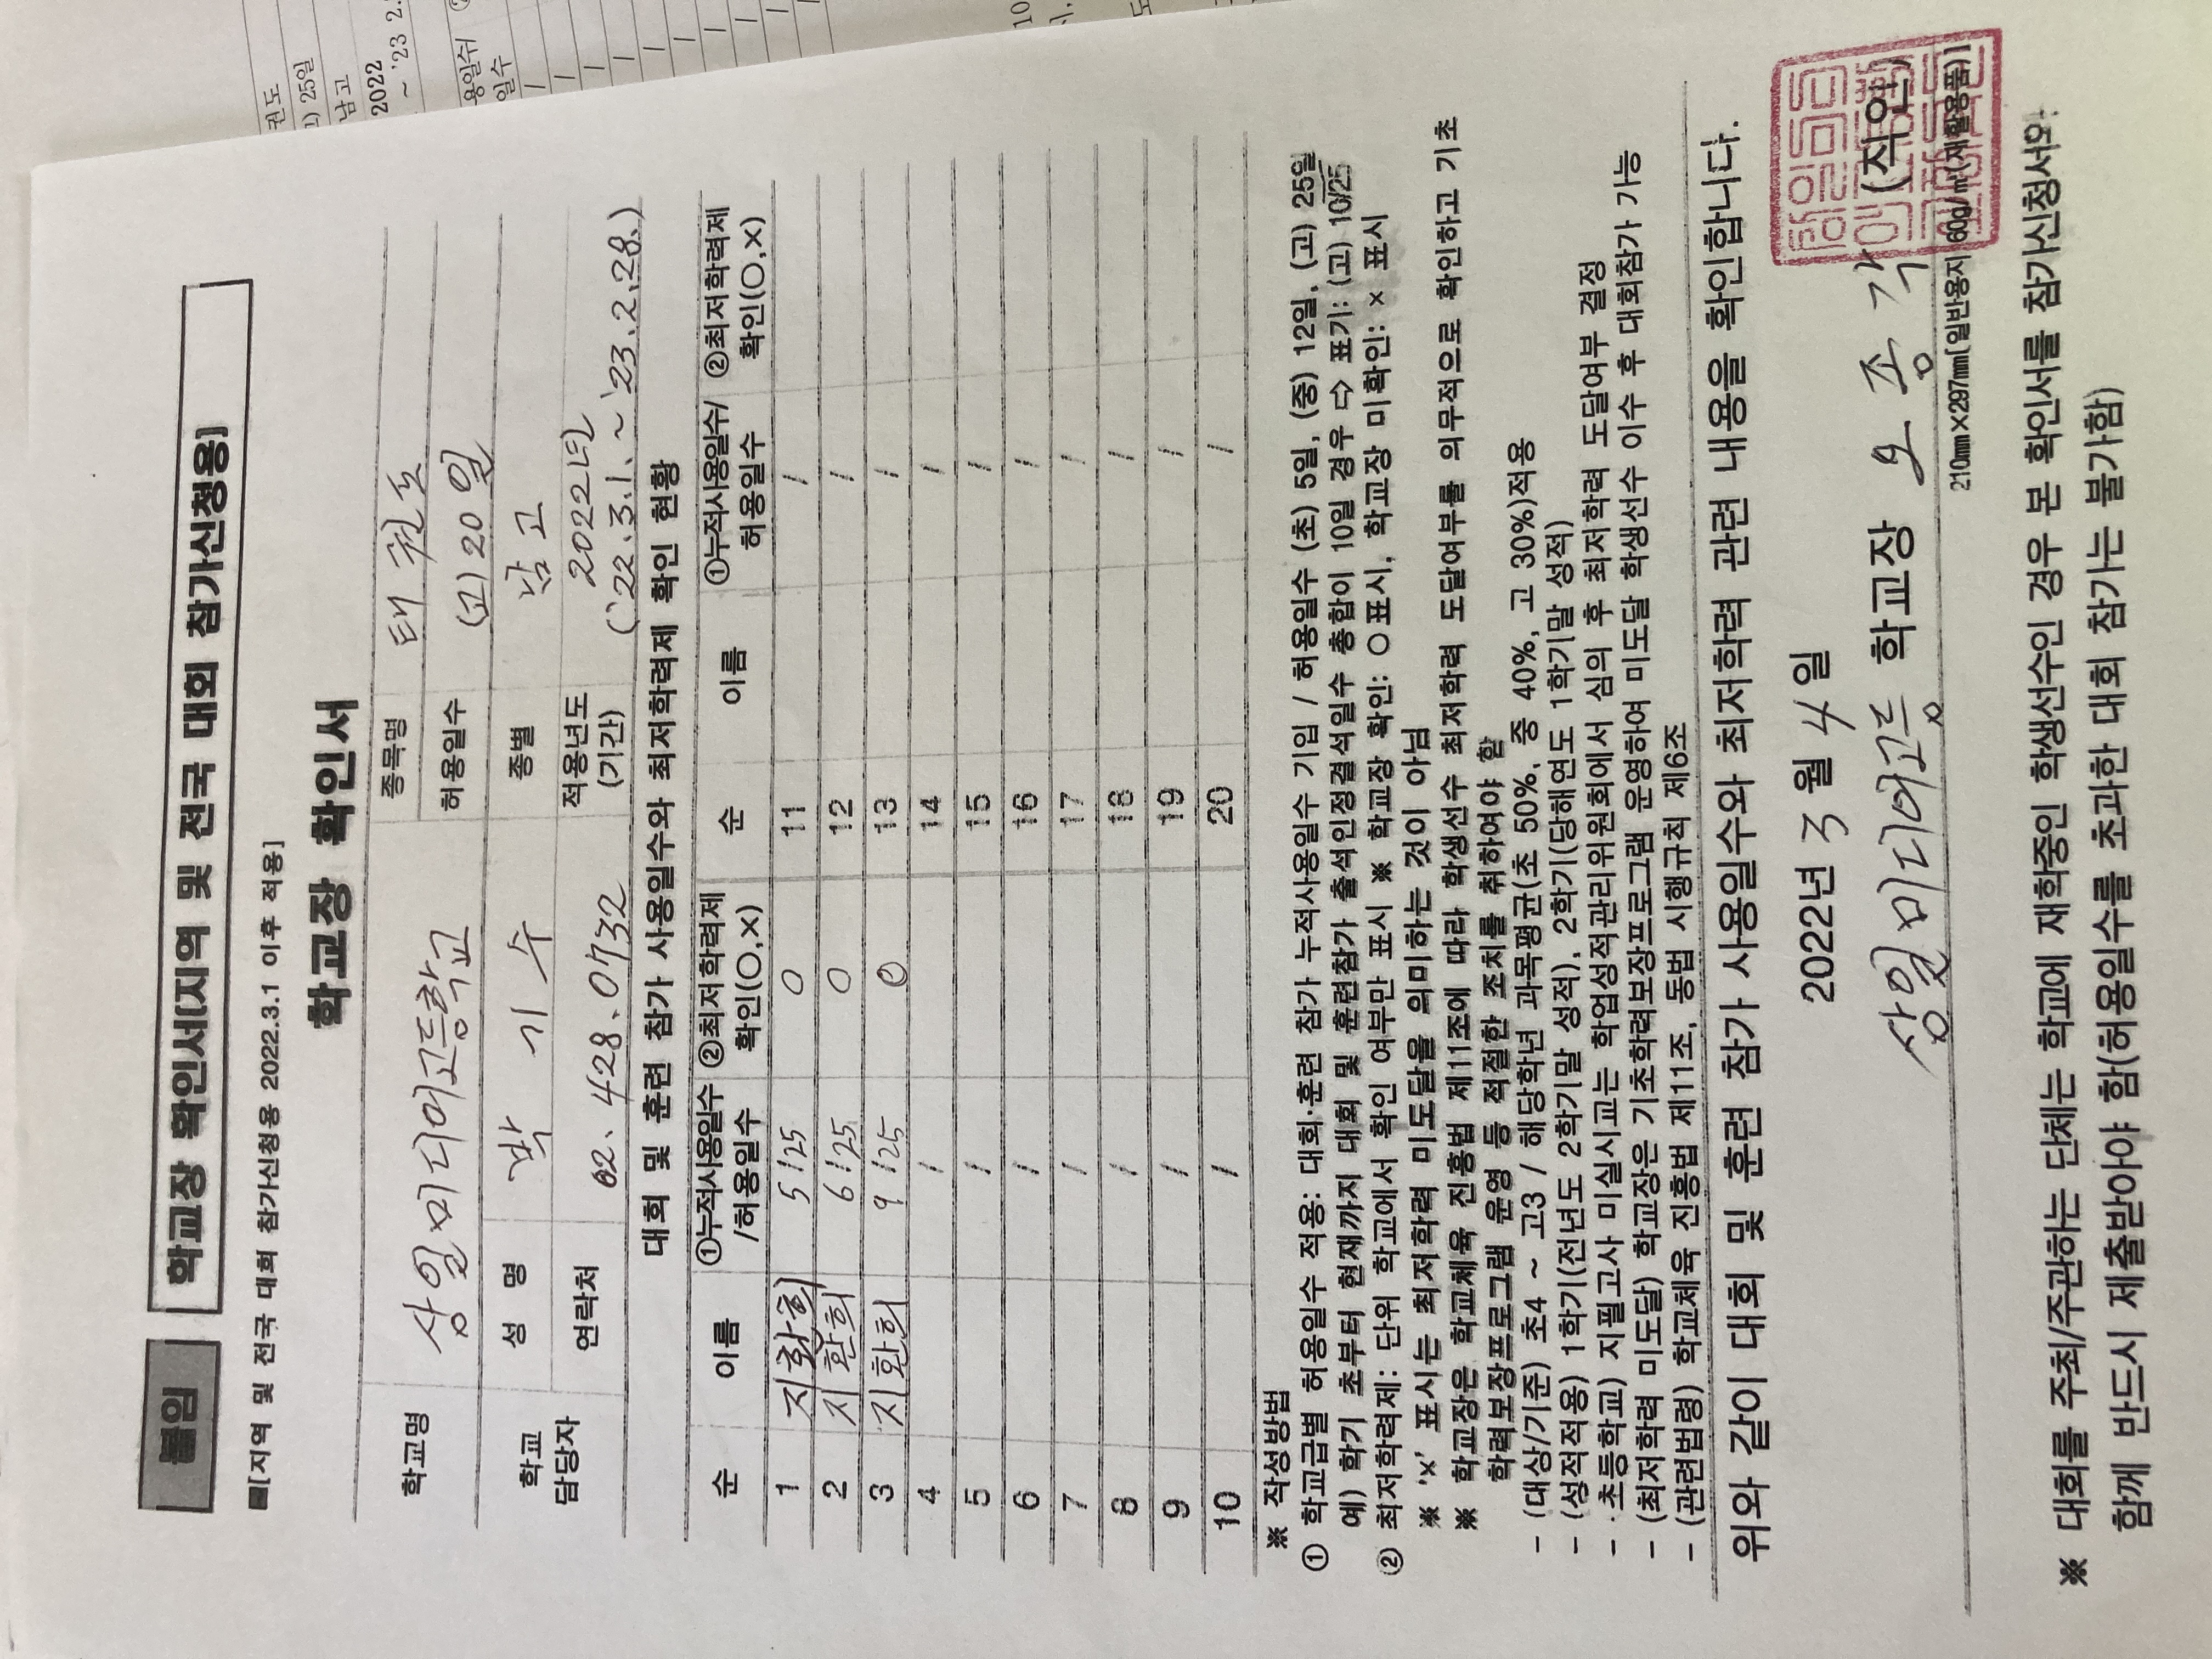 붙임
학교장 확인서(지역 및 전국 대회 참가신청용)
■[지역 및 전국 대회 참가신청용 2022.3.1 이후 적용]
학교장 확인서
학교명 상일미디어고등학교 종목명 태권도
허용일수 (고) 20일
학교 담당자 성 명 박 기 수 종별 남 고
연락처 02. 428. 0732 적용년도 (기간) 2022년 ('22.3.1. ~ '23.2.28.)
대회 및 훈련 참가 사용일수와 최저학력제 확인 현황
순 이름 ①누적사용일수/허용일수 ②최저학력제 확인(○,×) 순 이름 ①누적사용일수/허용일수 ②최저학력제 확인(○,×)
1 지환희 5/25 ○ 11 /
2 지환희 6/25 ○ 12 /
3 지환희 9/25 ○ 13 /
4 / 14 /
5 / 15 /
6 / 16 /
7 / 17 /
8 / 18 /
9 / 19 /
10 / 20 /
※ 작성방법
① 학교급별 허용일수 적용: 대회·훈련 참가 누적사용일수 기입 / 허용일수 (초) 5일, (중) 12일, (고) 25일
예) 학기 초부터 현재까지 대회 및 훈련참가 출석인정결석일수 총합이 10일 경우 ⇨ 표기: (고) 10/25
② 최저학력제: 단위 학교에서 확인 여부만 표시 ※ 학교장 확인: ○ 표시, 학교장 미확인: × 표시
※ '×' 표시는 최저학력 미도달을 의미하는 것이 아님
※ 학교장은 학교체육 진흥법 제11조에 따라 학생선수 최저학력 도달여부를 의무적으로 확인하고 기초
학력보장프로그램 운영 등 적절한 조치를 취하여야 함
- (대상/기준) 초4 ~ 고3 / 해당학년 과목평균(초 50%, 중 40%, 고 30%)적용
- (성적적용) 1학기(전년도 2학기말 성적), 2학기(당해연도 1학기말 성적)
- 초등학교) 지필고사 미실시교는 학업성적관리위원회에서 심의 후 최저학력 도달여부 결정
- (최저학력 미도달) 학교장은 기초학력보장프로그램 운영하여 미도달 학생선수 이수 후 대회참가 가능
- (관련법령) 학교체육 진흥법 제11조, 동법 시행규칙 제6조
위와 같이 대회 및 훈련 참가 사용일수와 최저학력 관련 내용을 확인합니다.
2022년 3월 4일
상일미디어고등 학교장 오종각 (직인)
210㎜×297㎜[일반용지 60g/㎡(재활용품)]
※ 대회를 주최/주관하는 단체는 학교에 재학중인 학생선수인 경우 본 확인서를 참가신청서와
함께 반드시 제출받아야 함(허용일수를 초과한 대회 참가는 불가함)
권도
25일
남고
2022
~ '23 2.
용일수/
일수